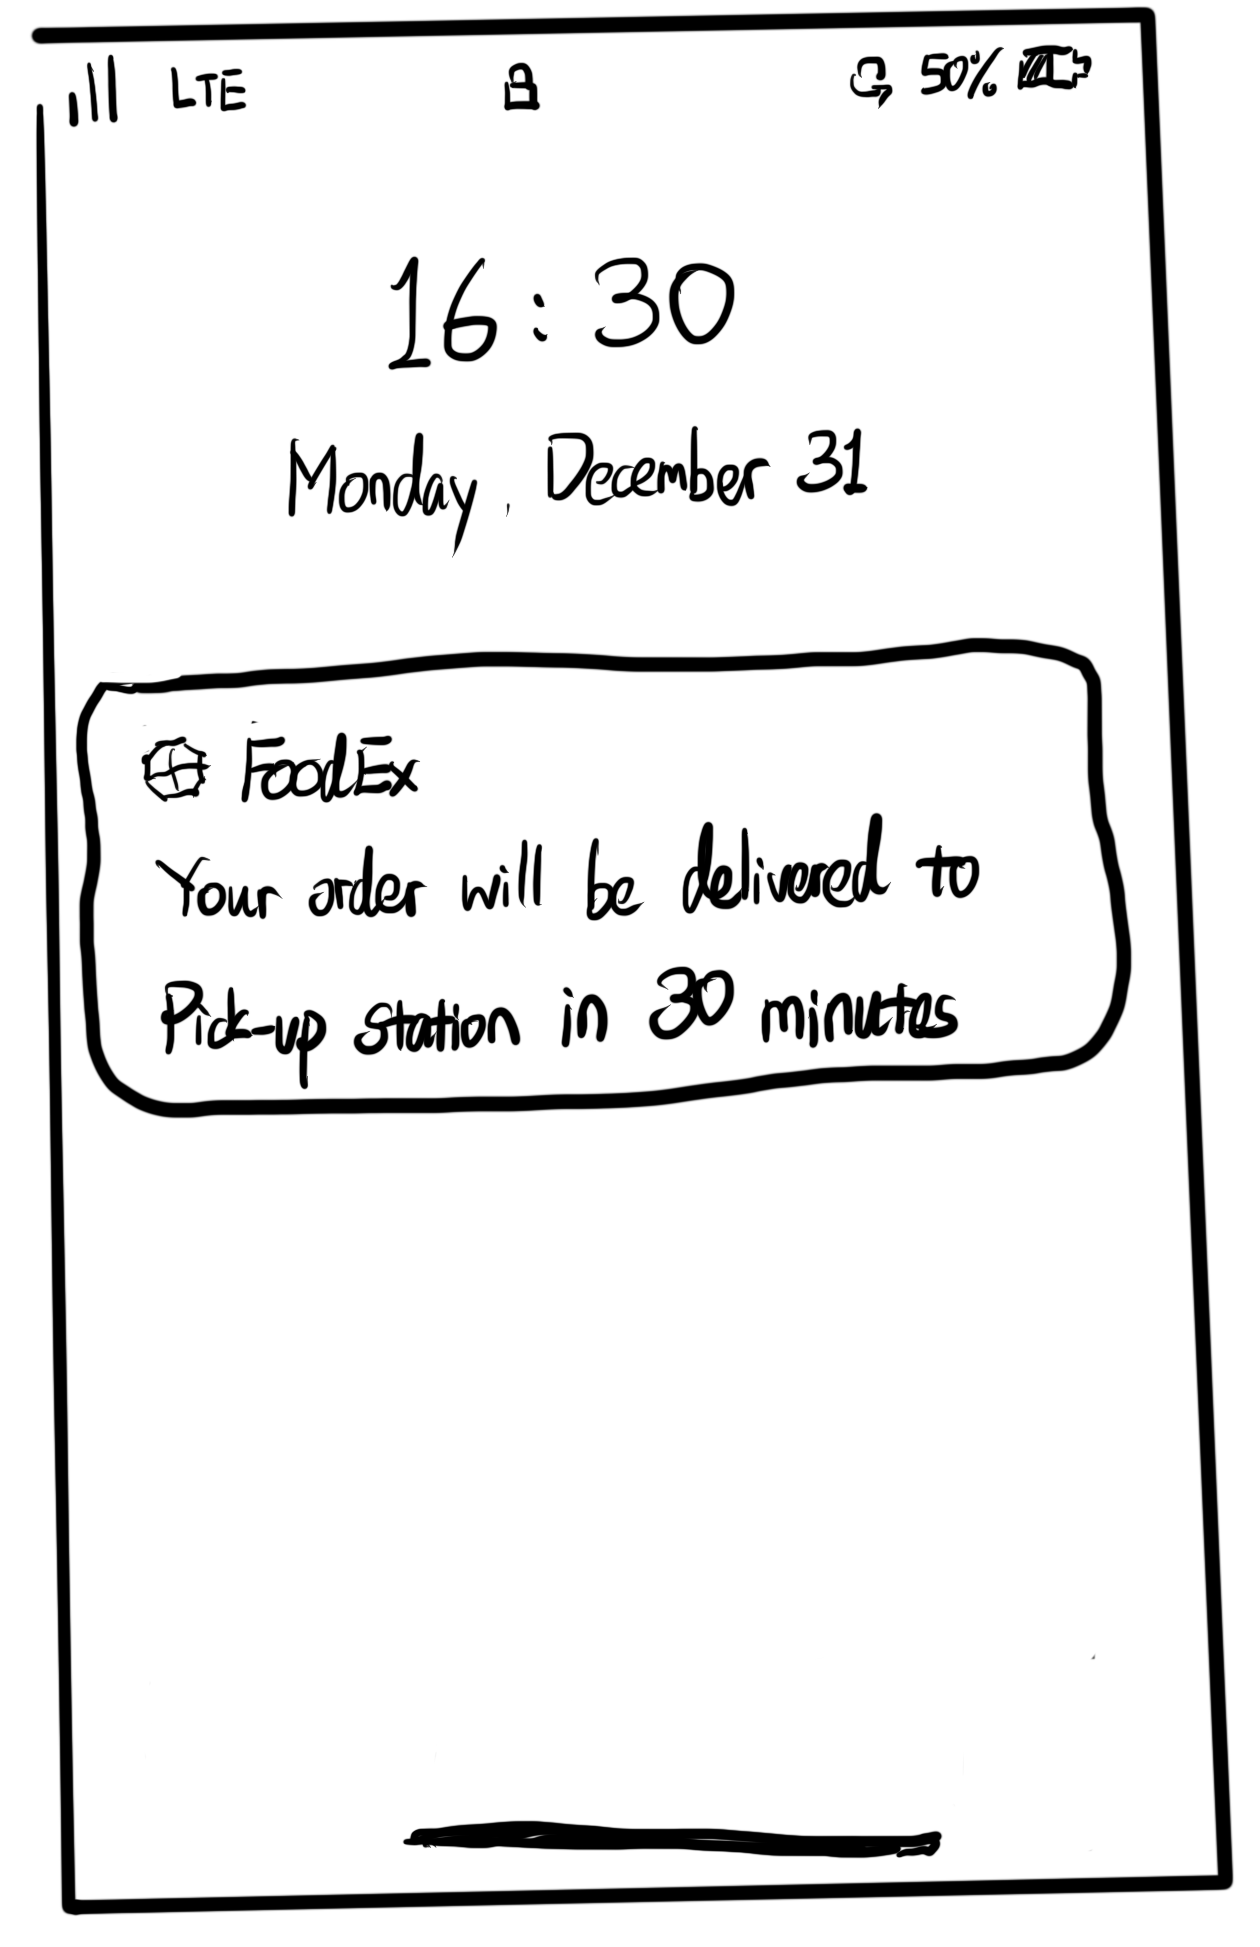 LTE 50%
16:30
Monday, December 31
FoodEx
Your order will be delivered to
Pick-up station in 30 minutes